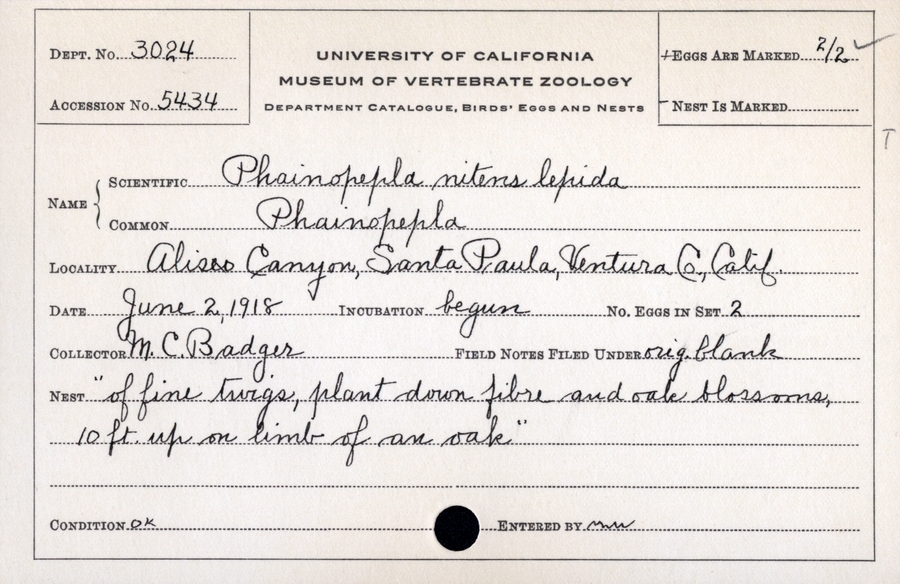 DEPT. No. 3024
ACCESSION No. 5434
UNIVERSITY OF CALIFORNIA
MUSEUM OF VERTEBRATE ZOOLOGY
DEPARTMENT CATALOGUE, BIRDS' EGGS AND NESTS
+EGGS ARE MARKED 2/2 ✓
- NEST IS MARKED
T
NAME
SCIENTIFIC Phainopepla nitens lepida
COMMON Phainopepla
LOCALITY Aliso Canyon, Santa Paula, Ventura Co, Calif.
DATE June 2, 1918 INCUBATION begun NO. EGGS IN SET 2
COLLECTOR M. C. Badger FIELD NOTES FILED UNDER orig. blank
NEST "of fine twigs, plant down fibre and oak blossoms,
10 ft. up on limb of an oak"
CONDITION OK ENTERED BY